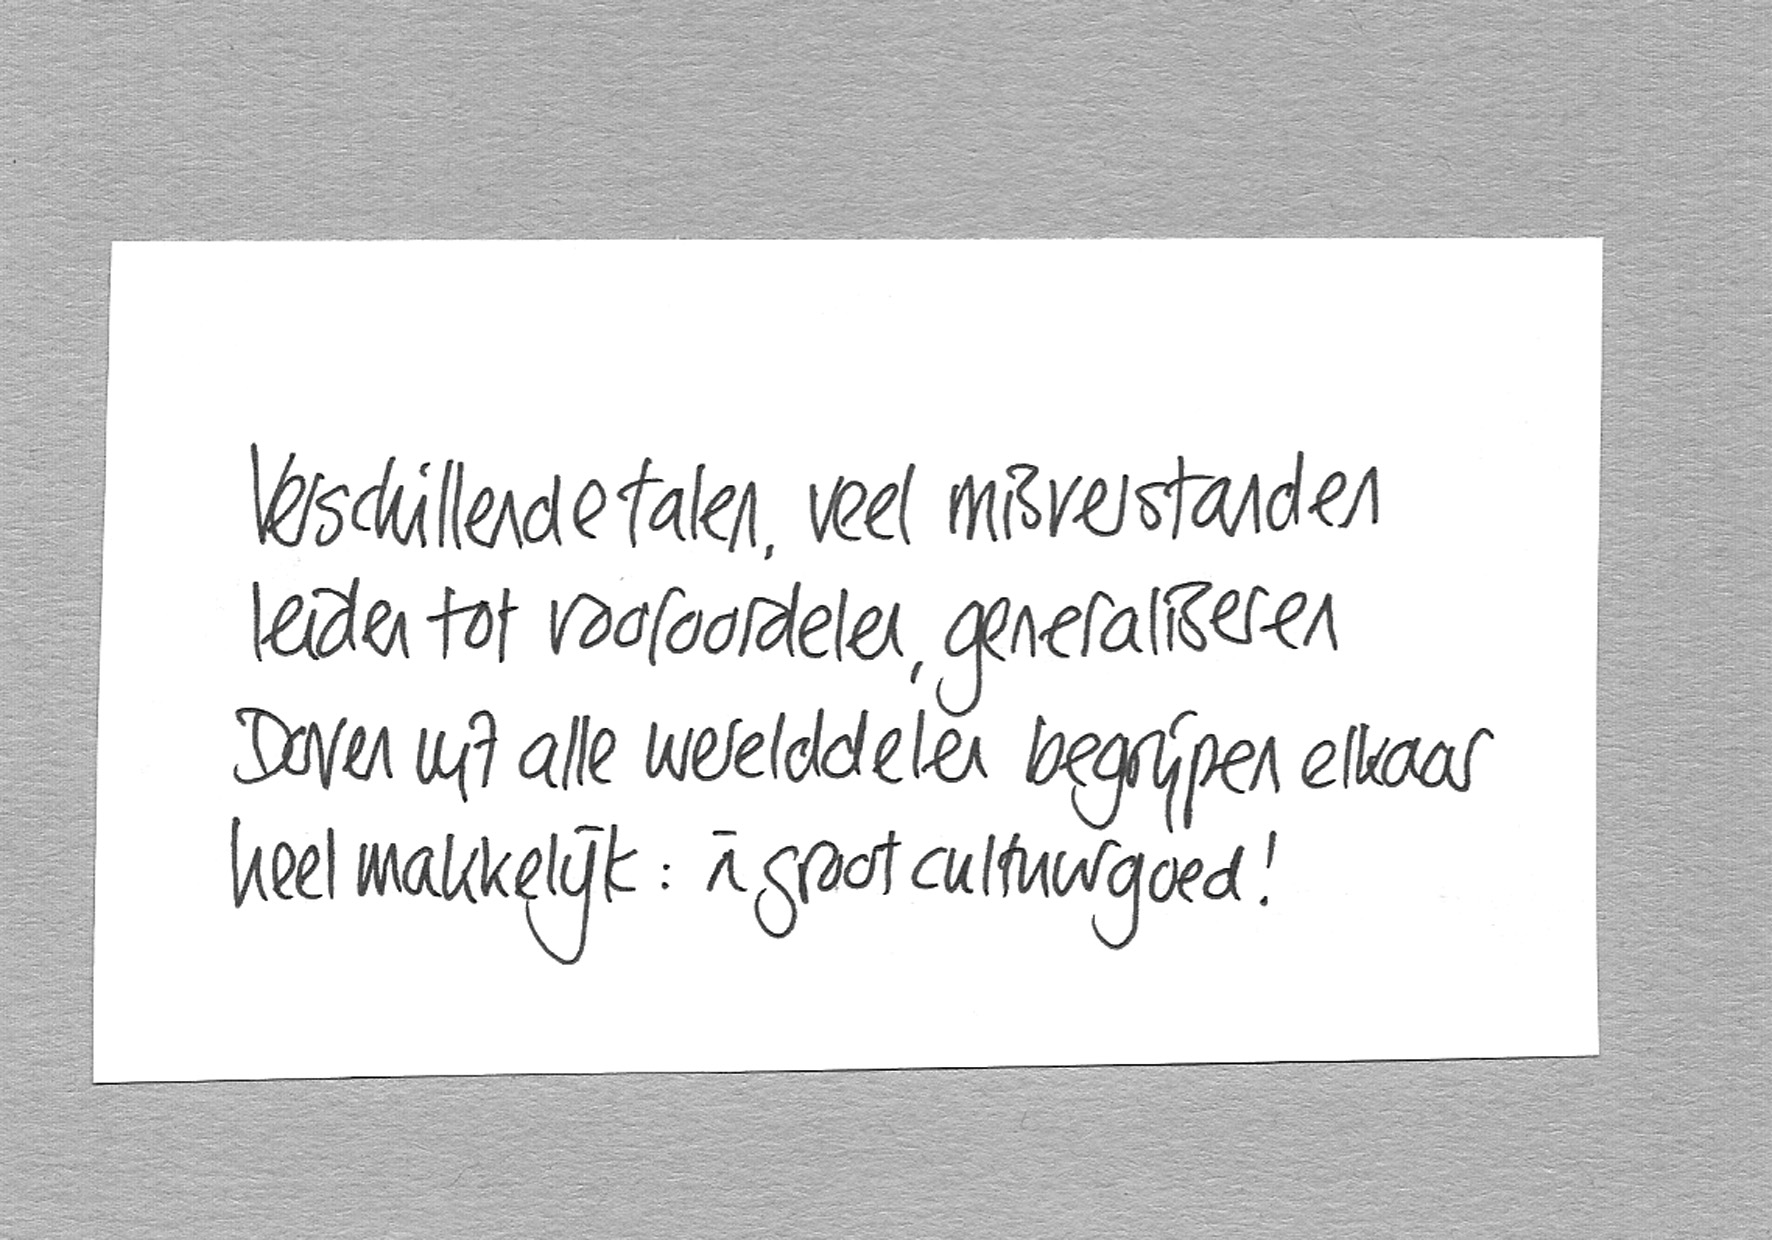 Verschillende talen, veel misverstanden
leiden tot vooroordelen, generaliseren
Doven uit alle werelddelen begrijpen elkaar
heel makkelijk: 'n groot cultuurgoed!